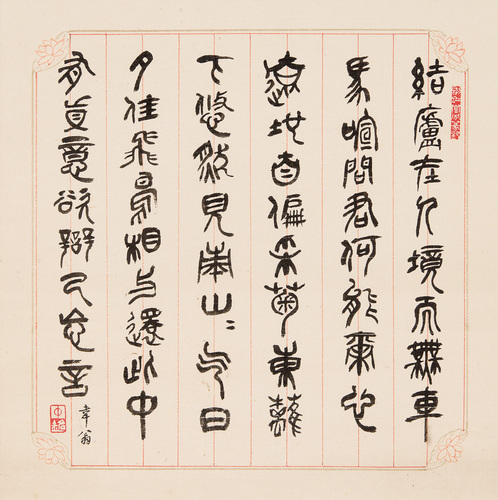 結廬在人境而無車
馬喧問君何能爾心
遠地自偏采菊東籬
下悠然見南山〻气日
夕佳飛鳥相与還此中
有真意欲辯已忘言
翁